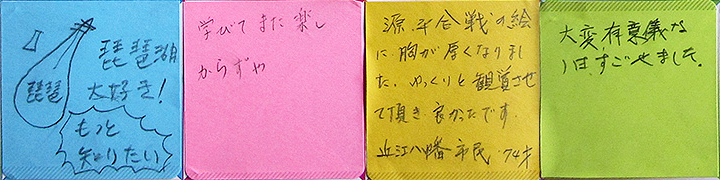 琵琶
琵琶湖
大好き!
もっと
知りたい
学びてまた楽し
からずや
源平合戦の絵
に胸が厚くなりまし
た。ゆっくりと観賞させ
て頂き良かったです。
近江八幡市民 74才
大変有意儀な
1日すごせました。